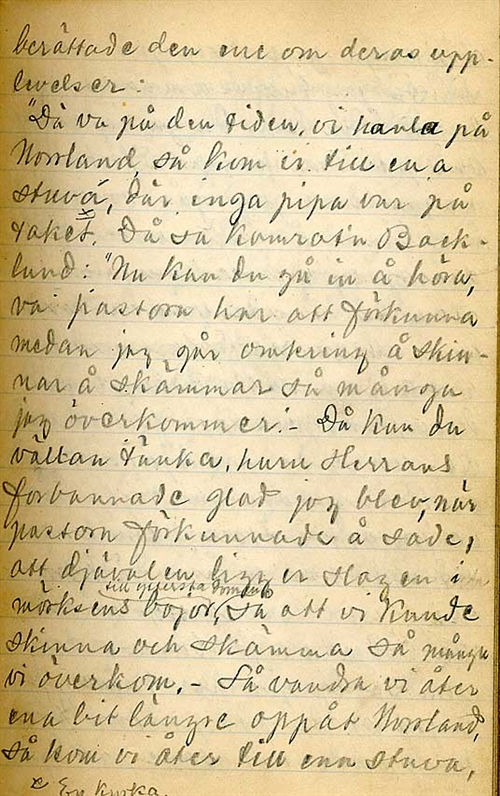 berättade den ene om deras upp-
levelser:
"Då va på den tiden, vi havla på
Norrland, så kom vi till en a
stuvá, där inga pipa var på
x
taket. Då sa kamrat'n Back-
lund: "Nu kan du gå in å höra,
va' pastorn har att förkunna
medan jag går omkring å skin-
nar å skämmar så många
jag överkommer." – Då kan du
vättan tänka, huru Herrans
förbannade glad jag blev, när
pastorn förkunnade å sade,
att djävulen ligger slagen i
till yttersta domen
mörksens bojor, så att vi kunde
skinna och skämma så många
vi överkom. – Så vandra vi åter
ena bit längre oppåt Norrland,
så kom vi åter till enn stuva,
x En kyrka.